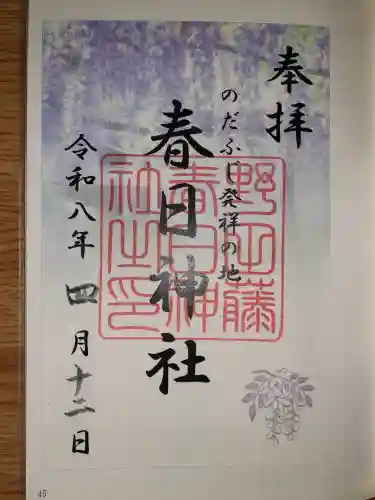 奉拝
のだふじ発祥の地
春日神社
令和八年四月十二日
野田藤
春日神
社之印
45